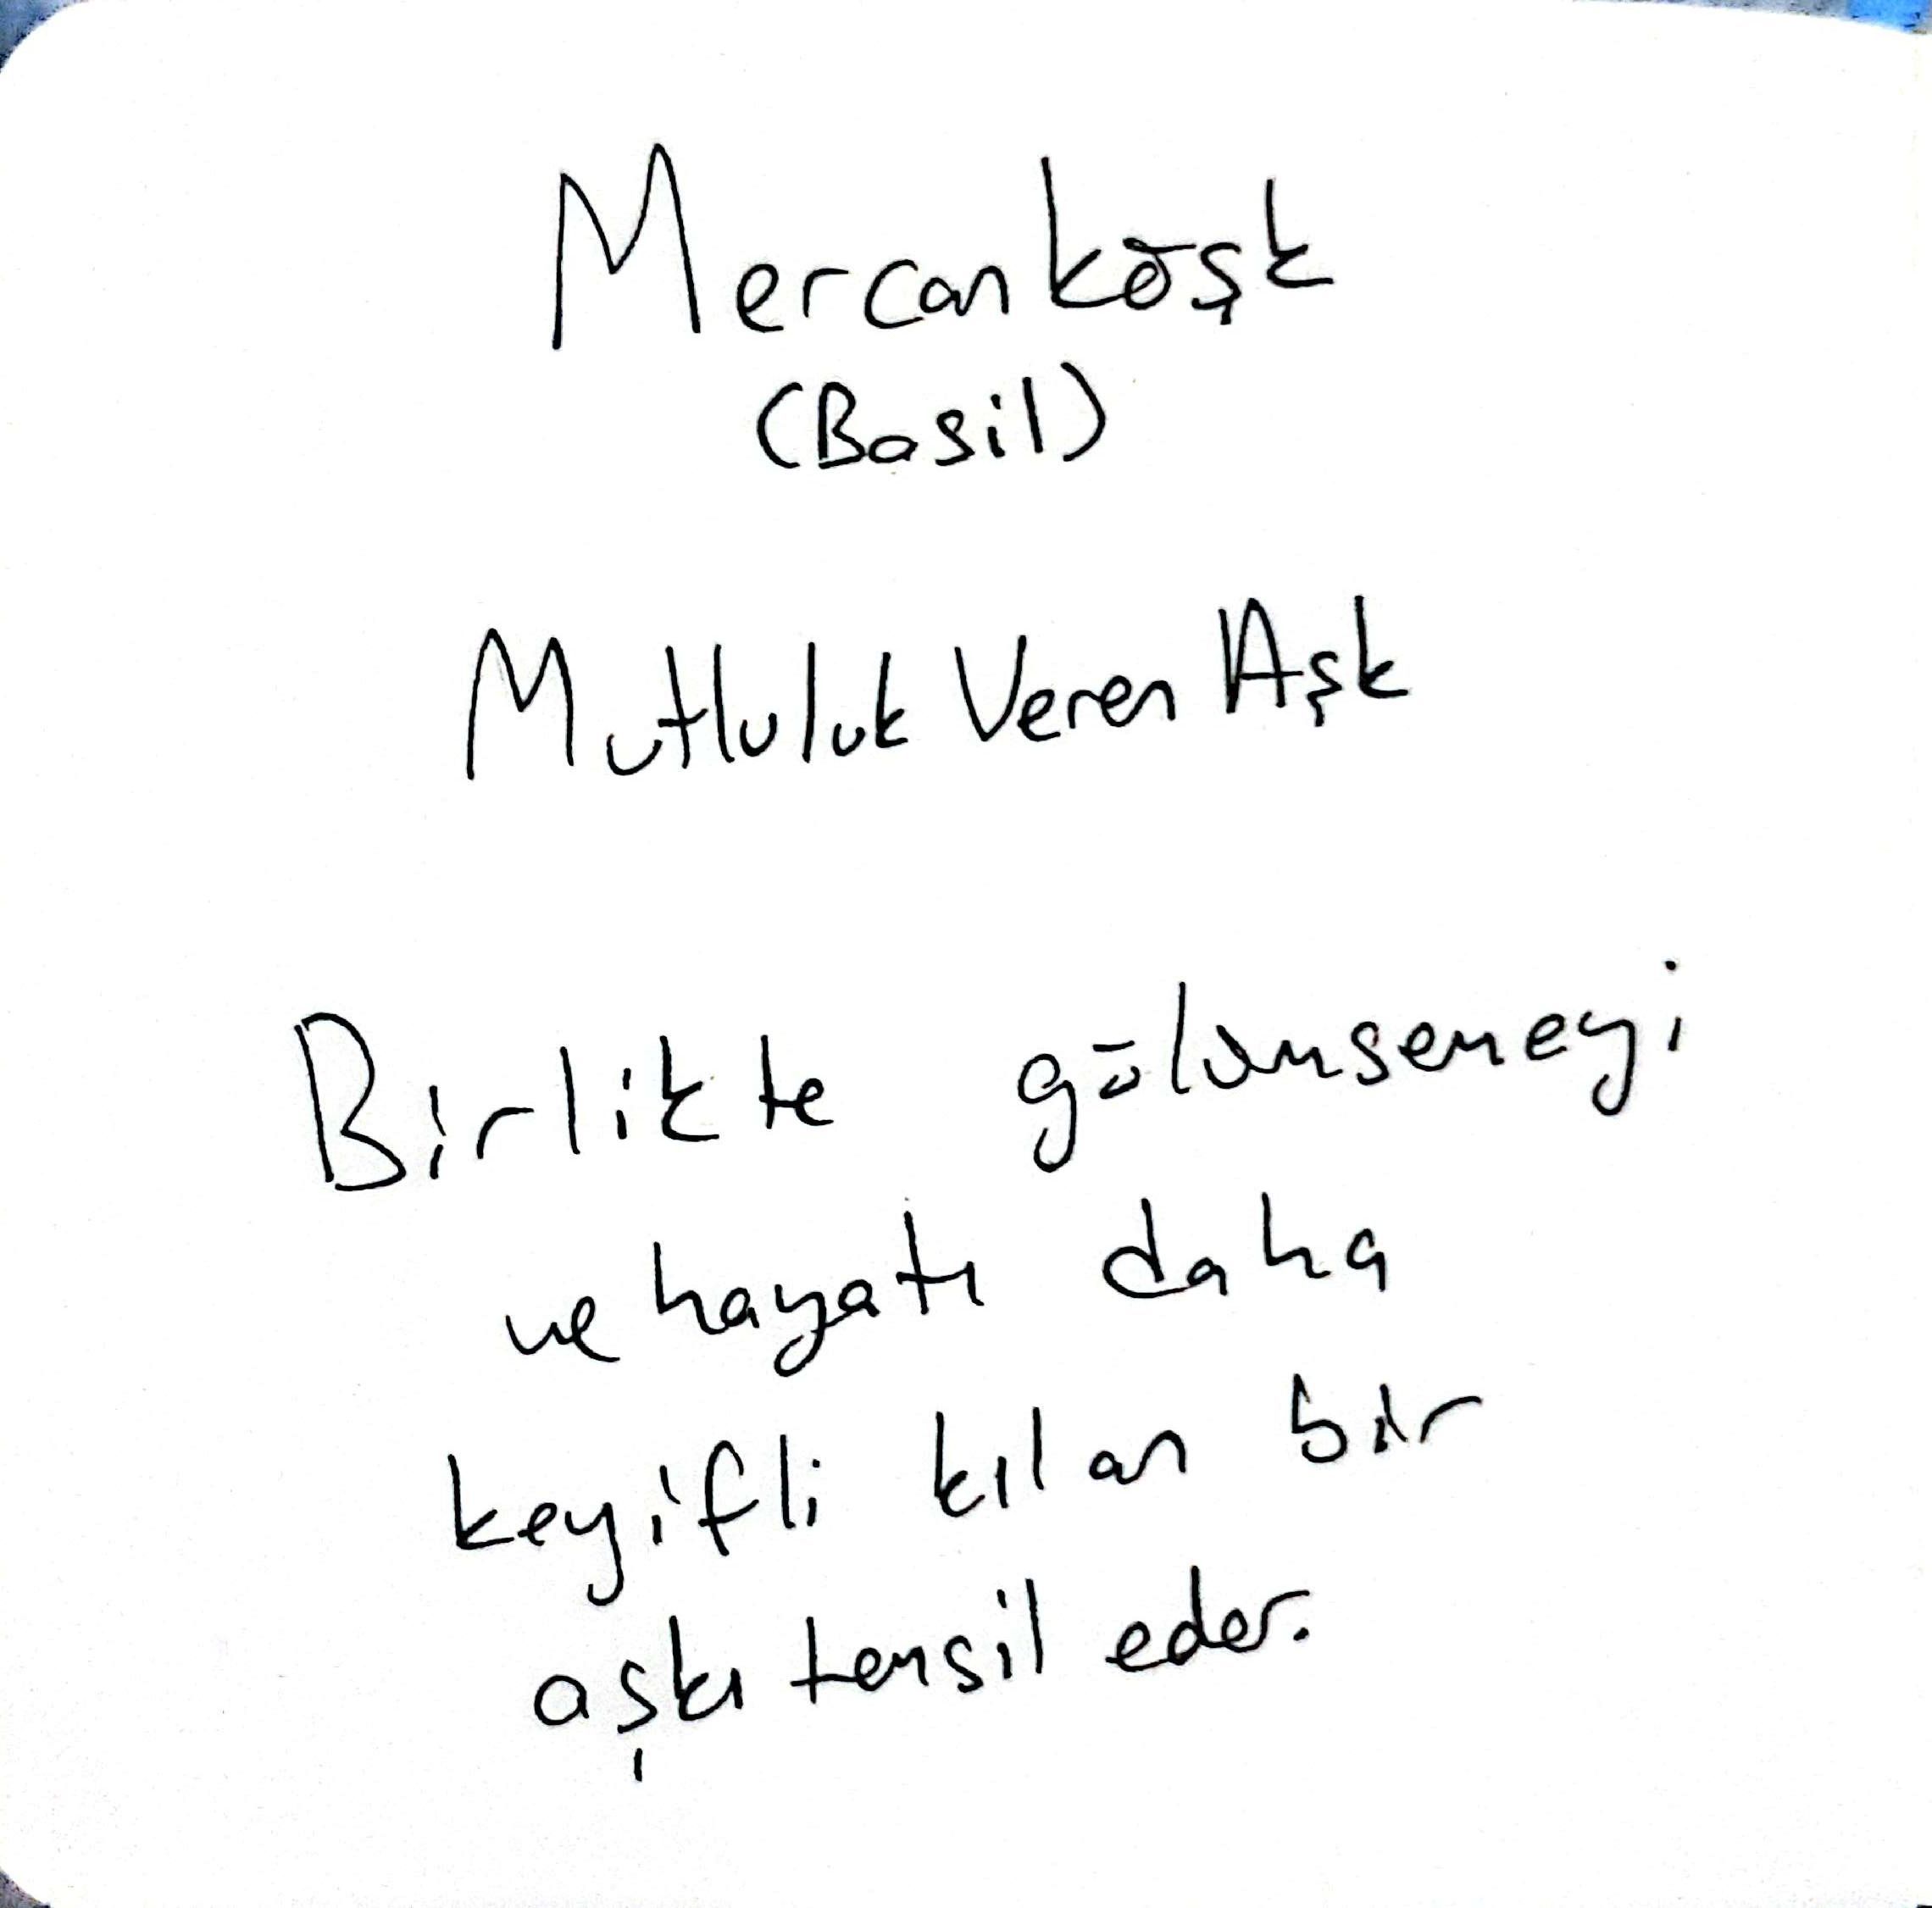 Mercanköşk
(Basil)
Mutluluk Veren Aşk
Birlikte gülümsemeyi
ve hayatı daha
keyifli kılan bir
aşkı temsil eder.